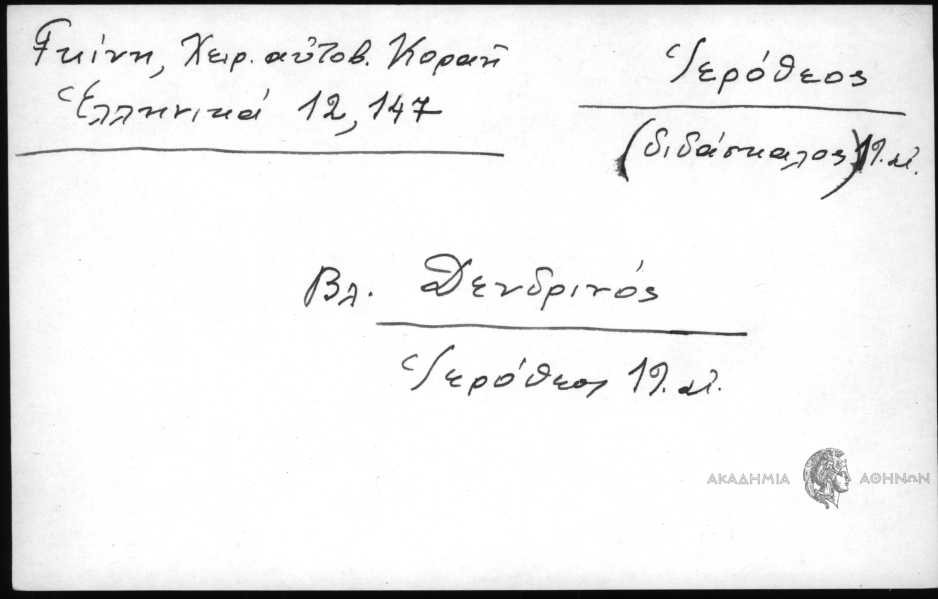 Γκίνη, Χειρ. αὐτοβ. Κοραῆ
Ἑλληνικά 12, 147
Ἱερόθεος
(διδάσκαλος) 19. αἰ.
Βλ. Δενδρινός
Ἱερόθεος 19. αἰ.
ΑΚΑΔΗΜΙΑ ΑΘΗΝΩΝ